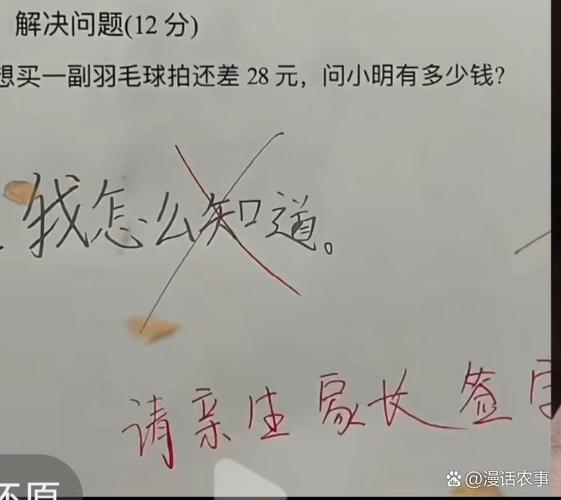 解决问题(12 分)
想买一副羽毛球拍还差 28 元，问小明有多少钱?
我怎么知道。
请亲生家长签字
还原
漫话农事